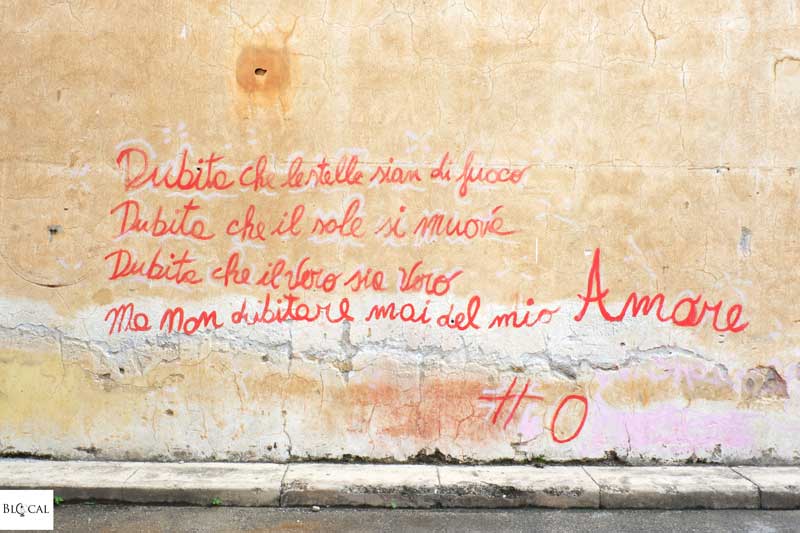 Dubita che le stelle sian di fuoco
Dubita che il sole si muova
Dubita che il Vero sia Vero
Ma Non dubitare mai del mio Amore
# O
BLOCAL